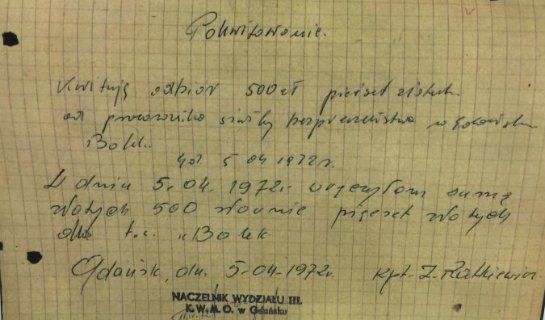 Pokwitowanie.
Kwituję odbiór 500 zł pięćset złotych
od pracownika służby bezpieczeństwa w Gdańsku
Bolek.
5 04 1972r.
W dniu 5.04.1972r. wręczyłem sumę
złotych 500 słownie pięćset złotych
dla t.w. "Bolek
Gdańsk, dn. 5-04-1972r. kpt. Z. Ratkiewicz
NACZELNIK WYDZIAŁU III.
K. W. M. O. w Gdańsku